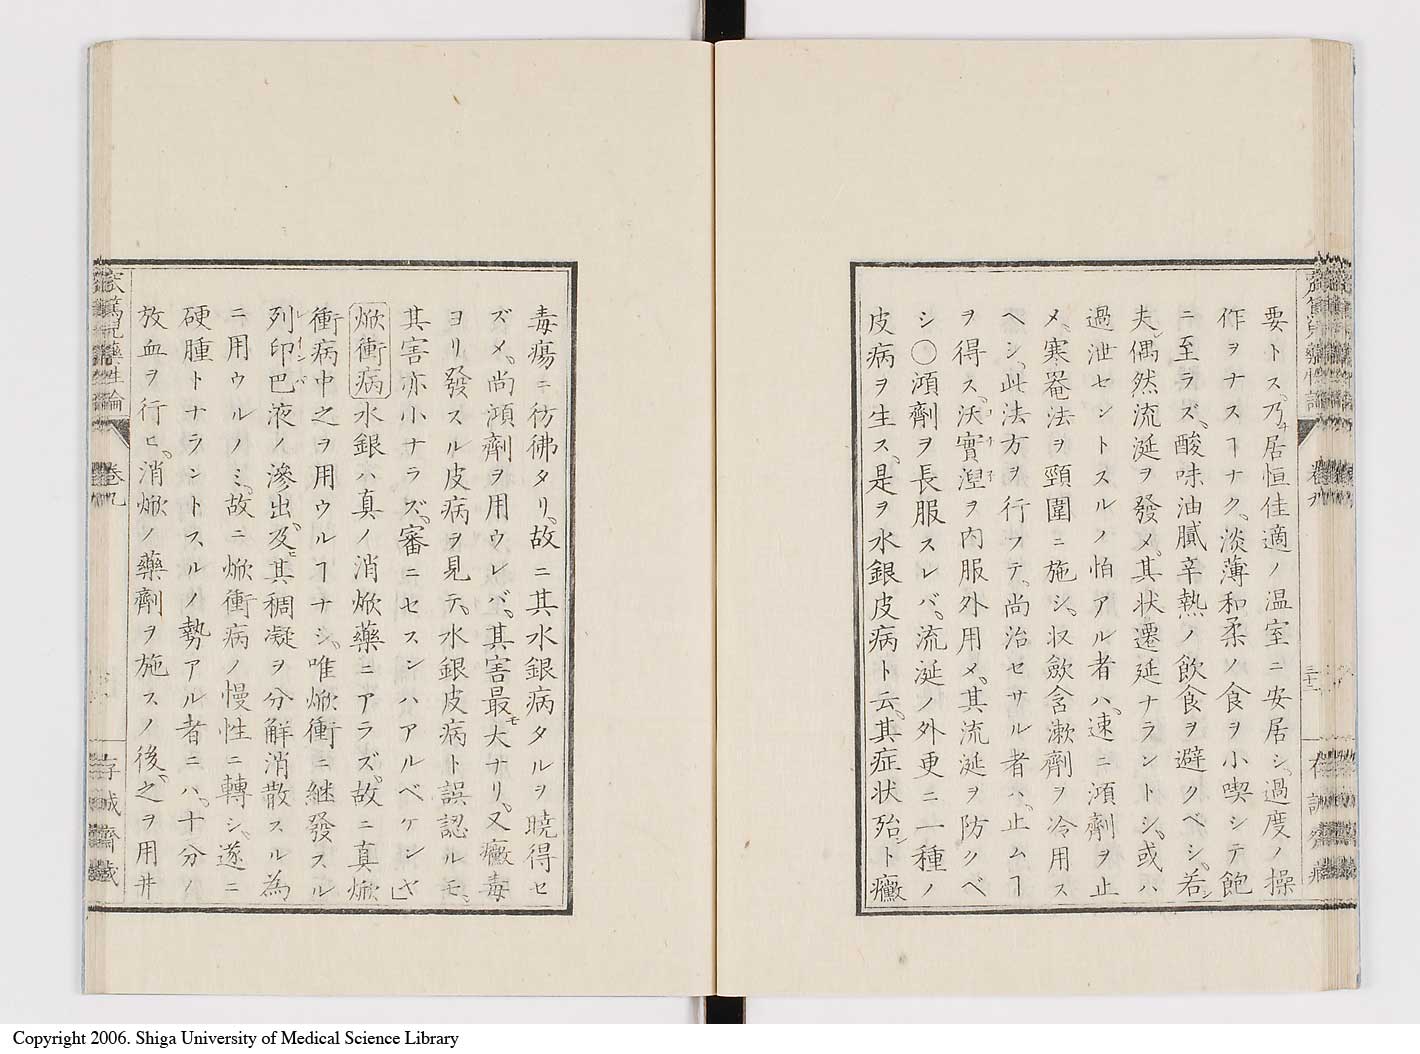 要トス、乃チ居恒佳適ノ温室ニ安居シ、過度ノ操
作ヲナスヿナク、淡薄和柔ノ食ヲ小喫シテ飽
ニ至ラズ、酸味油膩辛熱ノ飲食ヲ避クベシ、若シ
夫レ偶然流涎ヲ發メ、其状遷延ナラントシ、或ハ
過泄セントスルノ怕アル者ハ、速ニ澒劑ヲ止
メ、寒罨法ヲ頸圍ニ施シ、収歛含漱劑ヲ冷用ス
ヘシ、此法方ヲ行フテ、尚治セサル者ハ、止ムヿ
ヲ得ス、沃實涅ヲ内服外用メ、其流涎ヲ防クベ
シ〇澒劑ヲ長服スレバ、流涎ノ外更ニ一種ノ
皮病ヲ生ス、是ヲ水銀皮病ト云、其症状殆ント黴
毒瘍ニ彷彿タリ、故ニ其水銀病タルヲ曉得セ
ズメ、尚澒劑ヲ用ウレバ、其害最モ大ナリ、又黴毒
ヨリ發スル皮病ヲ見テ、水銀皮病ト誤認ルモ、
其害亦小ナラズ、審ニセスンハアルベケンヤ」
焮衝病水銀ハ真ノ消焮藥ニアラズ、故ニ真焮
衝病中之ヲ用ウルヿナシ、唯焮衝ニ継發スル
列印巴液ノ滲出、及ニ其稠凝ヲ分解消散スル為
ニ用ウルノミ、故ニ焮衝病ノ慢性ニ轉シ、遂ニ
硬腫トナラントスルノ勢アル者ニハ、十分ノ
放血ヲ行ヒ、消焮ノ藥劑ヲ施スノ後、之ヲ用井
卷九
Copyright 2006. Shiga University of Medical Science Library